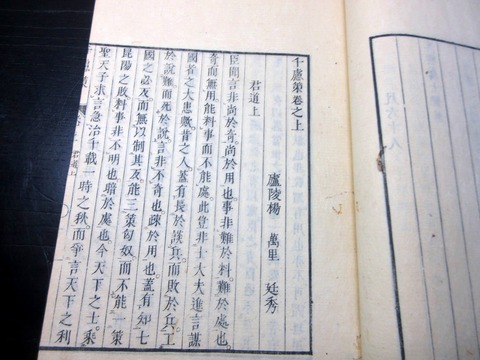 千慮策卷之上
廬陵楊 萬里 廷秀
君道上
臣聞言非尚於奇尚於用也。事非難於料難於處也。
奇而無用能料事而不能處。此豈非士大夫進言謀
國者之大患歟昔之人蓋有長於談兵。而敗於兵。工
於說難而死於說。言非不奇也疎於用也。蓋有知七
國之必反而無以制其反能三策匈奴而不能一策
昆陽之敗。料事非不明也暗於處也今天下之士。乘
聖天子求言急治千載一時之秋。而爭言天下之利
君道上